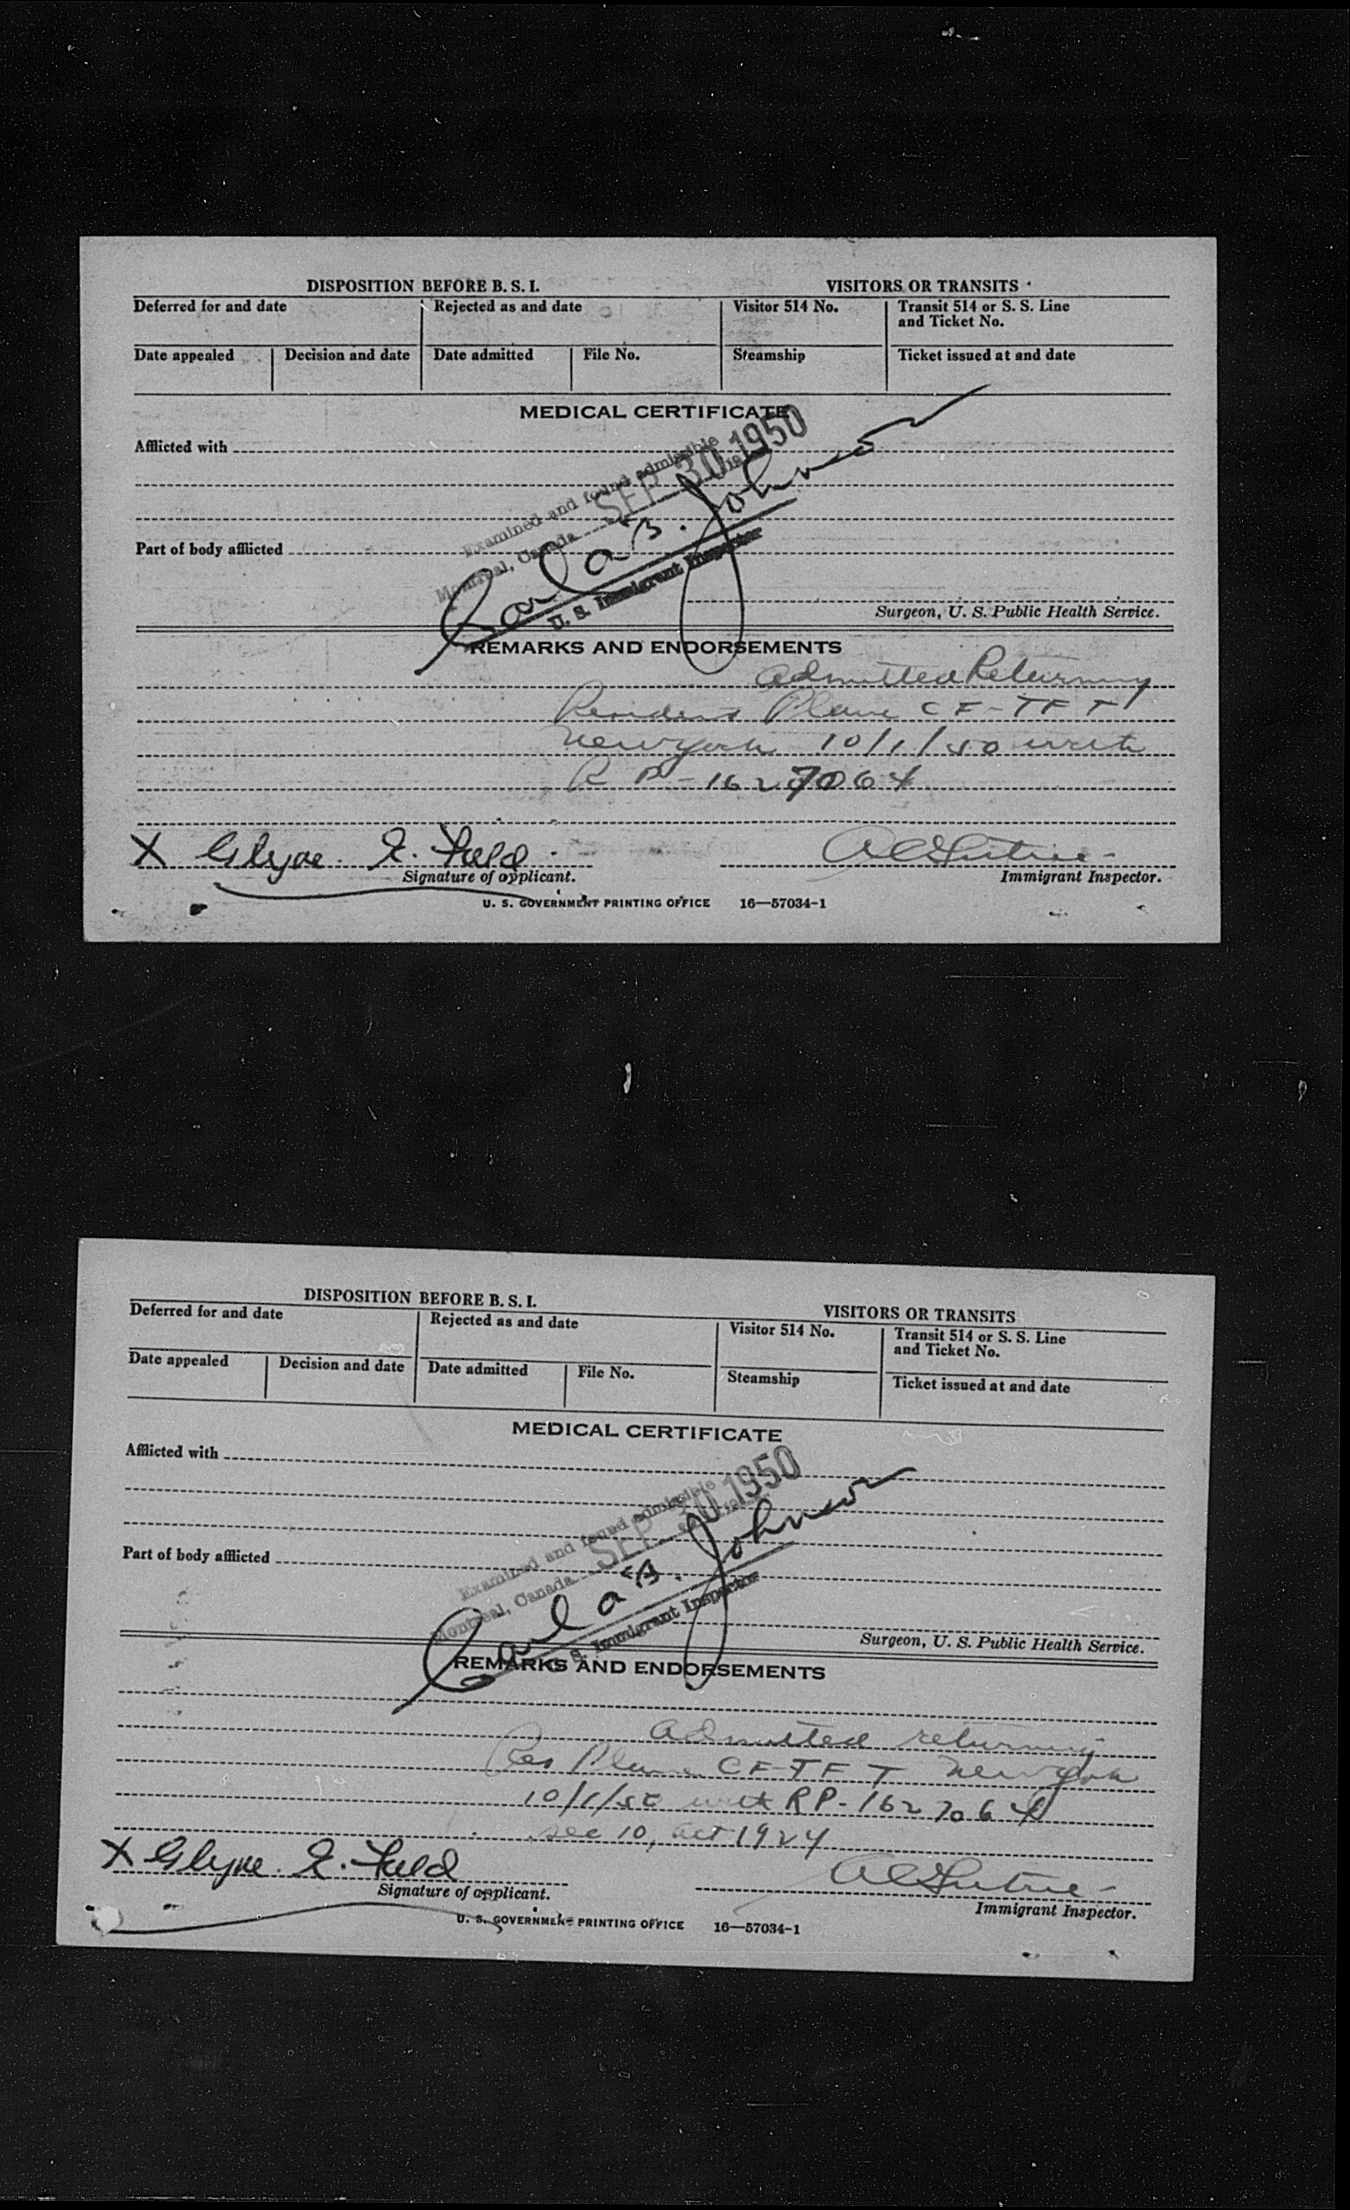 DISPOSITION BEFORE B. S. I.
VISITORS OR TRANSITS
Deferred for and date
Rejected as and date
Visitor 514 No.
Transit 514 or S. S. Line
and Ticket No.
Date appealed
Decision and date
Date admitted
File No.
Steamship
Ticket issued at and date
MEDICAL CERTIFICATE
Afflicted with
Examined and found admissible
Montreal, Canada SEP 30 1950
Carl B. Johnson
U. S. Immigrant Inspector
Part of body afflicted
Surgeon, U. S. Public Health Service.
REMARKS AND ENDORSEMENTS
admitted Returning
Resident Plane CF-TFT
New York 10/1/50 with
R P-1627064
X Glyne E. Field
Signature of applicant.
Immigrant Inspector.
U. S. GOVERNMENT PRINTING OFFICE 16—57034-1
DISPOSITION BEFORE B. S. I.
VISITORS OR TRANSITS
Deferred for and date
Rejected as and date
Visitor 514 No.
Transit 514 or S. S. Line
and Ticket No.
Date appealed
Decision and date
Date admitted
File No.
Steamship
Ticket issued at and date
MEDICAL CERTIFICATE
Afflicted with
Examined and found admissible
Montreal, Canada SEP 30 1950
Carl B. Johnson
U. S. Immigrant Inspector
Part of body afflicted
Surgeon, U. S. Public Health Service.
REMARKS AND ENDORSEMENTS
admitted returning
Res Plane CF-TFT New York
10/1/50 with RP-1627064
sec 10, act 1924
X Glyne E. Field
Signature of applicant.
Immigrant Inspector.
U. S. GOVERNMENT PRINTING OFFICE 16—57034-1